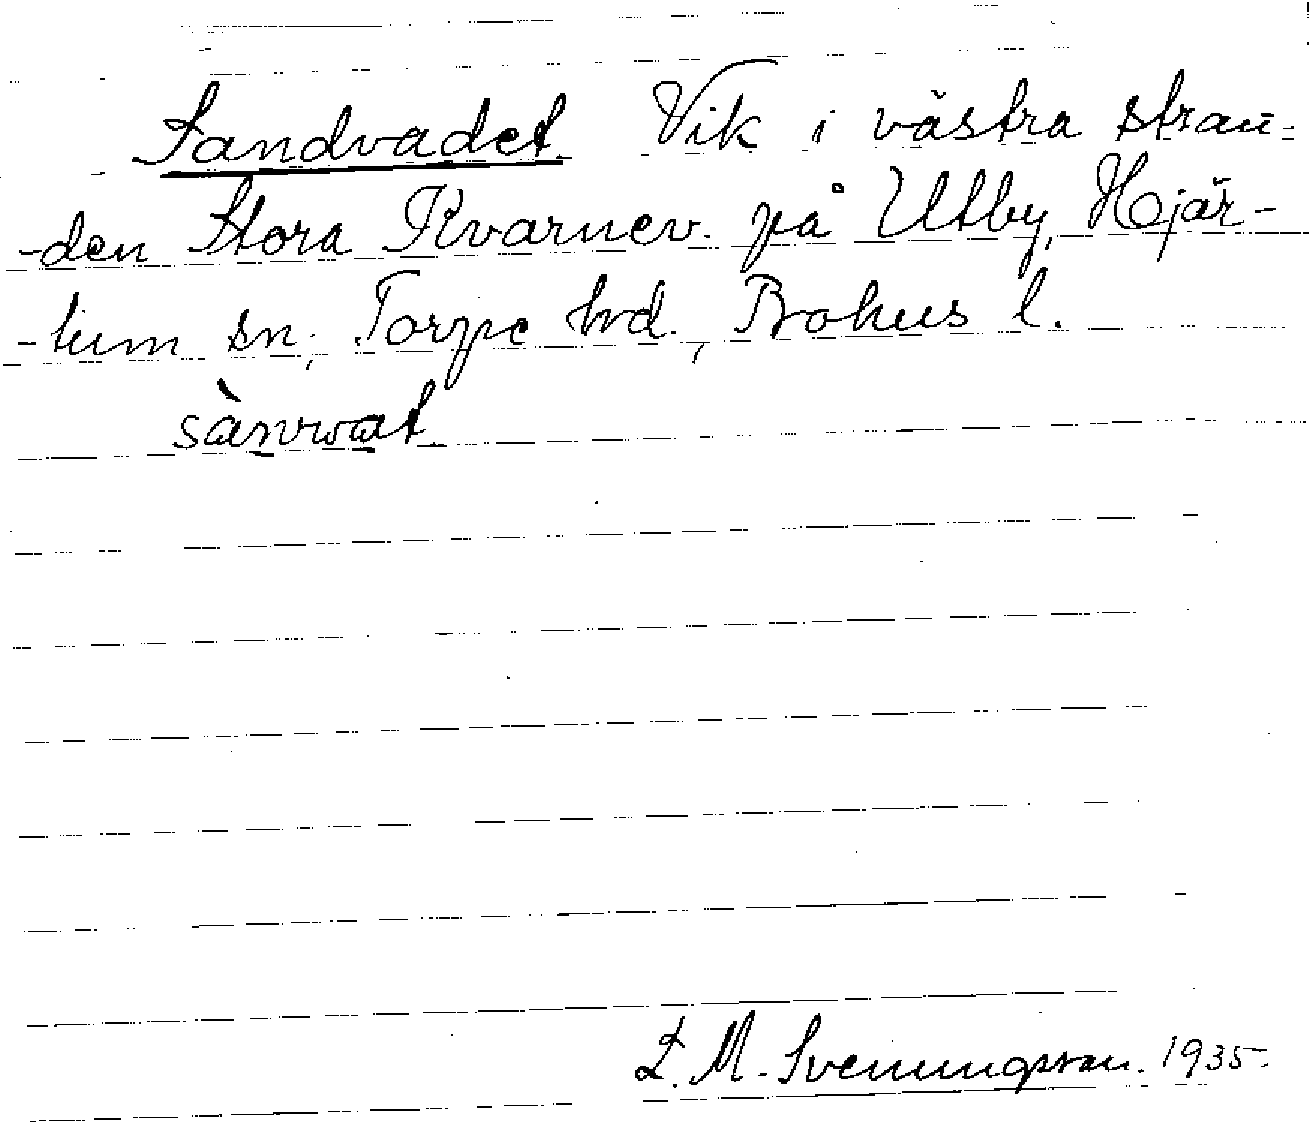 Sandvadet Vik i västra stran-
-den Stora Kvarnev. på Utby, Hjär-
-tum sn, Torpe hd., Bohus l.
sànvat
L. M. Svenungsson. 1935.